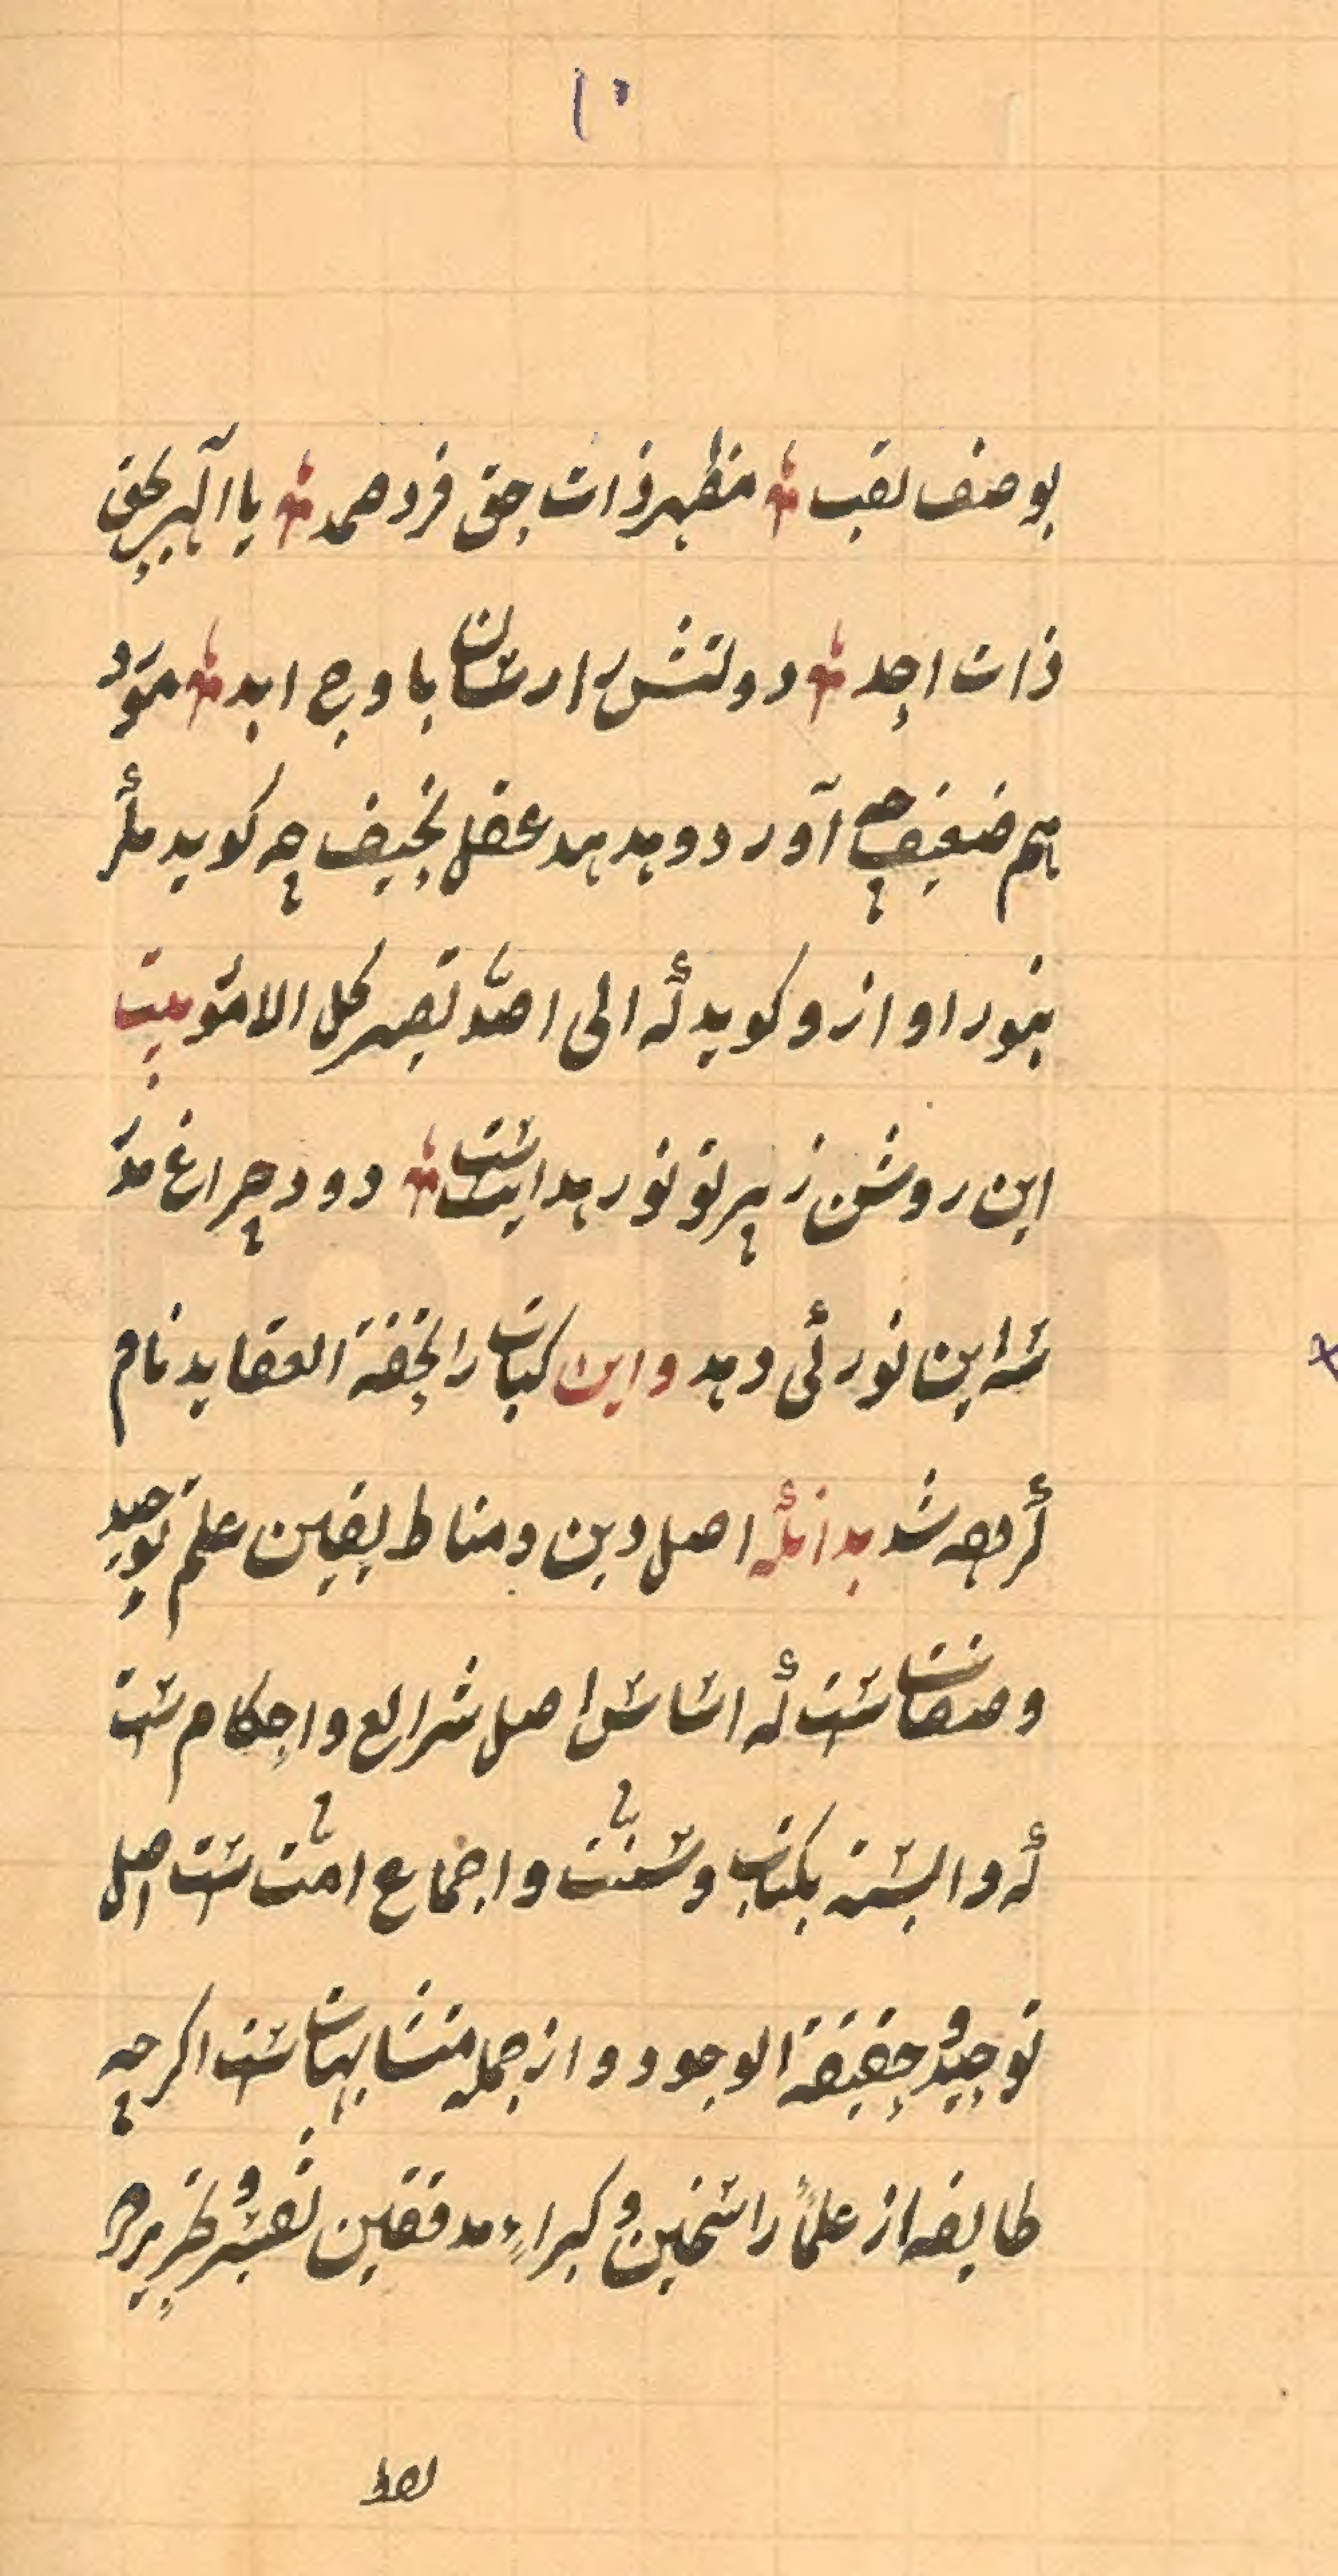 ۱۰
بوصف لقب مظهر ذات حق فرد صمد یا الهی بحق
ذات احد دولتش را رسان باوج ابد مور
هم ضعیف چه آورد و هدهد عقل نحیف چه کوید مکر
بنور او ازو کوید که الی اصله تصیر کل الامور بیت
این روشن ز پرتو نور هدایتست دود چراغ مدر
سه این نور کی دهد و این کتاب را تحفة العقاید نام
کرده شد بدانکه اصل دین و مناط یقین علم توحید
و صفاتست که اساس اصل شرایع و احکامست
که وابسته بکتاب و سنت و اجماع امتست اصل
توحید و حقیقة الوجود و از جمله متشابهاتست اکرچه
طایفه از علماء راسخین و کبراء مدققین تفسیر و تحریر